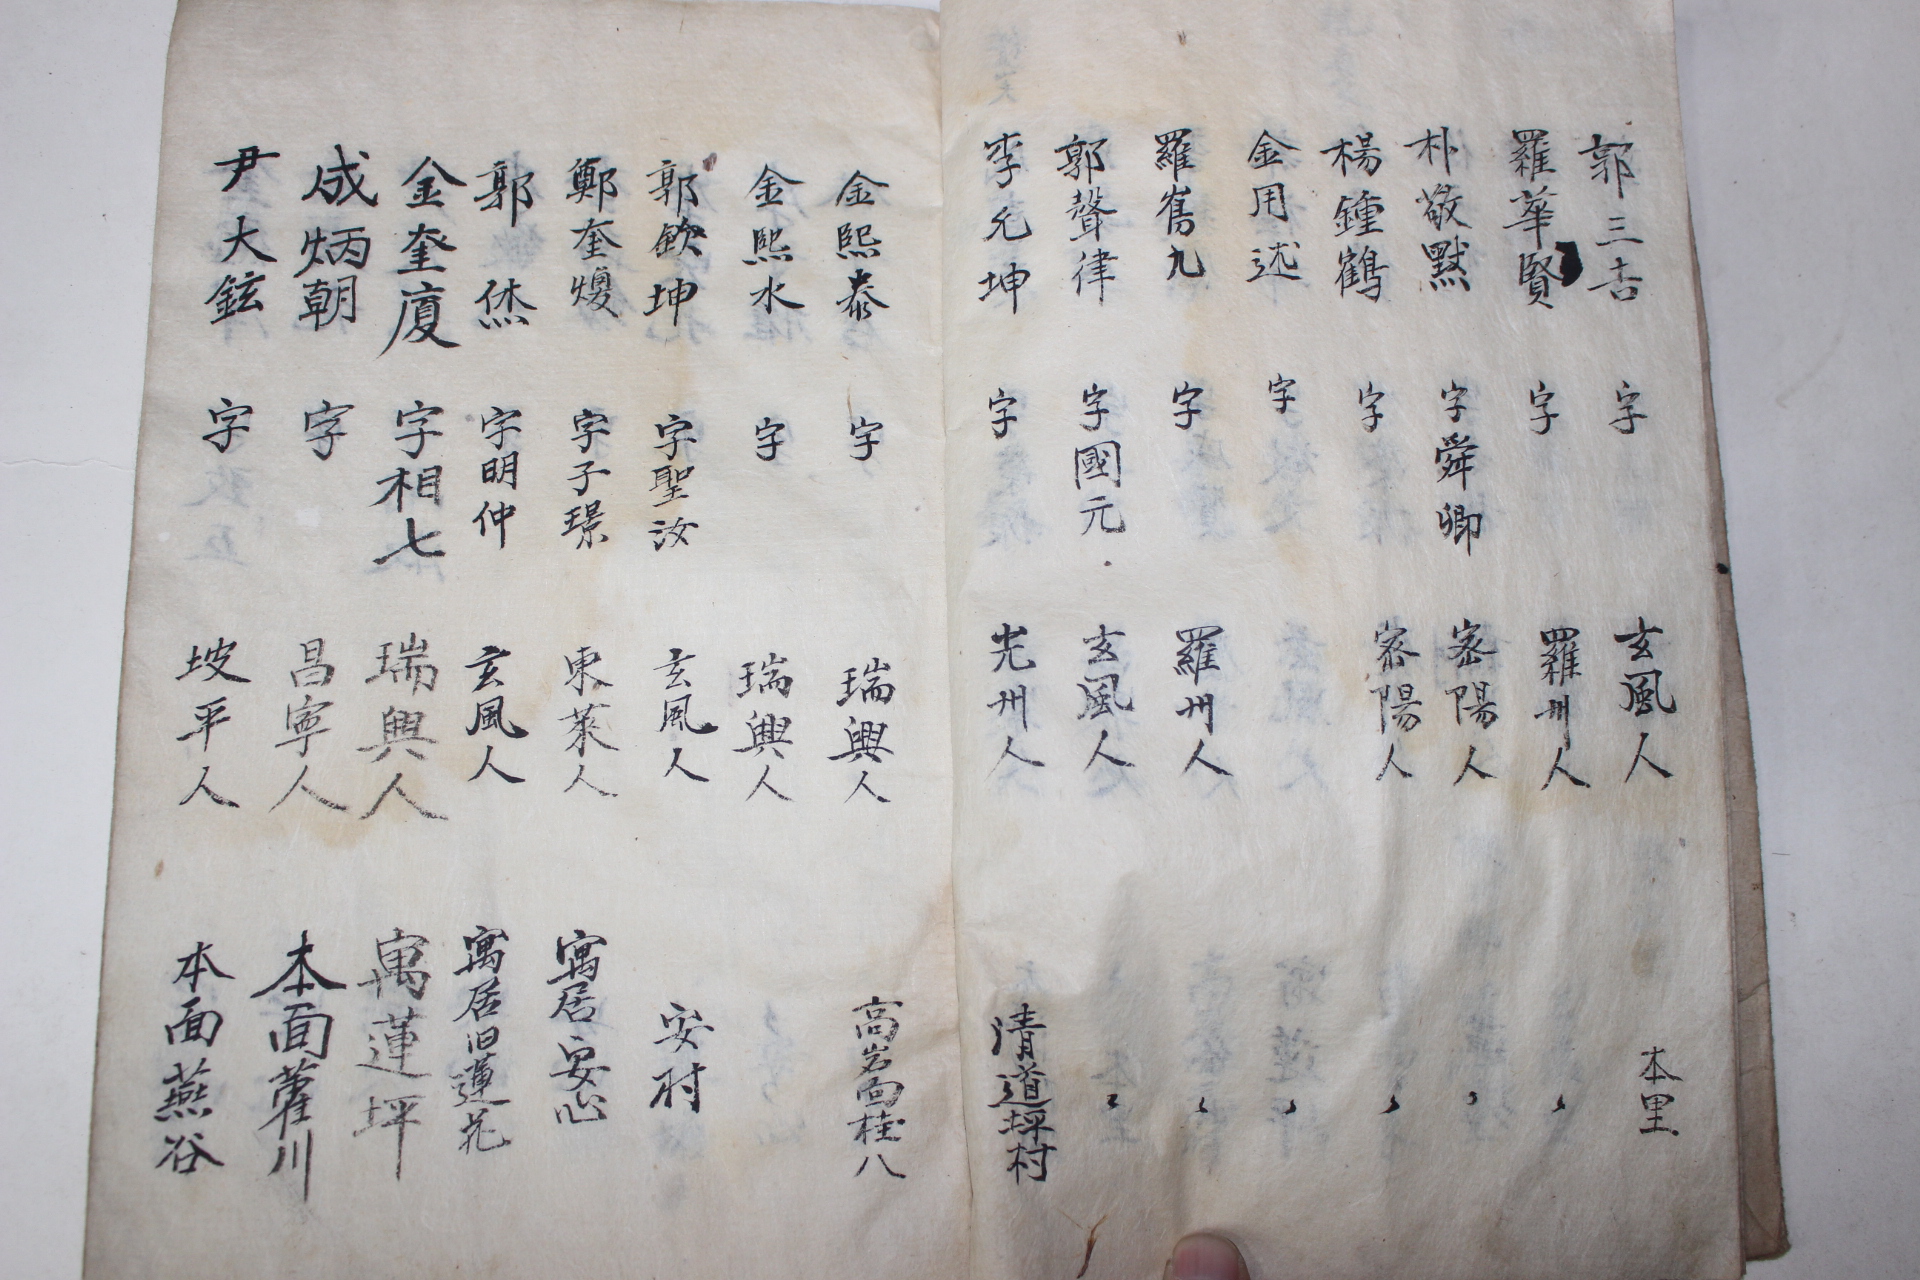 郭三吉 字 玄風人 本里
羅華賢 字 羅州人 〻
朴敬默 字舜卿 密陽人 〻
楊鍾鶴 字 密陽人 〻
金用述 字 〻
羅雋九 字 羅州人 〻
郭聲律 字國元 玄風人 〻
李允坤 字 光州人 清道坪村
金熙泰 字 瑞興人 高岩面桂八
金熙水 字 瑞興人
郭欽坤 字聖汝 玄風人 安村
鄭奎煥 字子璟 東萊人 寓居安心
郭烋 字明仲 玄風人 寓居旧蓮花
金奎廈 字相七 瑞興人 寓蓮坪
成炳朝 字 昌寧人 本面藿川
尹大鉉 字 坡平人 本面燕谷